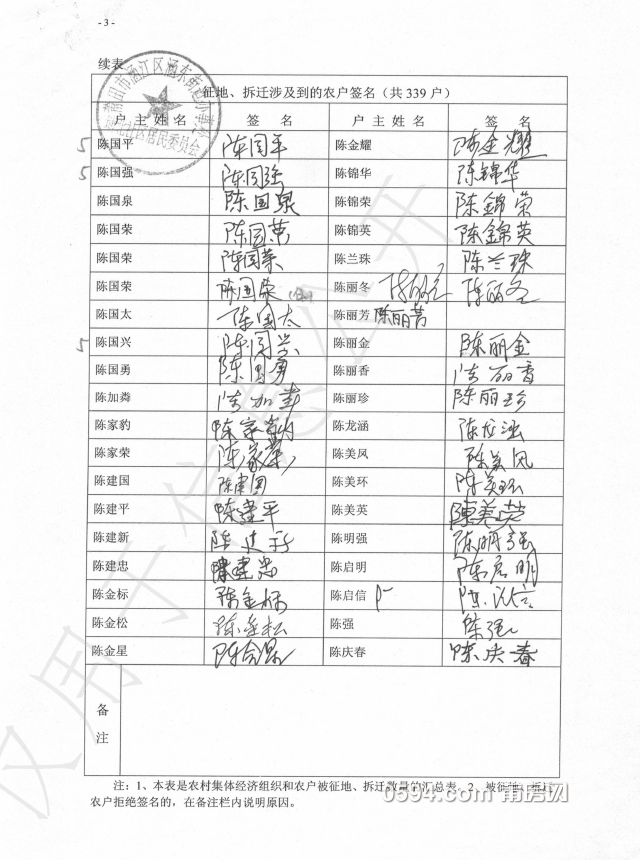 - 3 -
续表
征地、拆迁涉及到的农户签名（共 339 户）
户主姓名 签 名 户主姓名 签 名
陈国平 陈国平 陈金耀 陈金耀
陈国强 陈国强 陈锦华 陈锦华
陈国泉 陈国泉 陈锦荣 陈錦荣
陈国荣 陈国荣 陈锦英 陈錦英
陈国荣 陈国荣 陈兰珠 陈兰珠
陈国荣 陈国荣 陈丽冬 陈丽冬
陈国太 陈国太 陈丽芳 陈丽芳
陈国兴 陈国兴 陈丽金 陈丽金
陈国勇 陈国勇 陈丽香 陈丽香
陈加粦 陈加 陈丽珍 陈丽珍
陈家豹 陈家豹 陈龙涵 陈龙涵
陈家荣 陈家荣 陈美凤 陈美凤
陈建国 陈建国 陈美环 陈美环
陈建平 陈建平 陈美英 陳美英
陈建新 陈建新 陈明强 陈明强
陈建忠 陈建忠 陈启明 陈启明
陈金标 陈金标 陈启信 陈启信
陈金松 陈金松 陈强 陈强
陈金星 陈金星 陈庆春 陈庆春
备注
注：1、本表是农村集体经济组织和农户被征地、拆迁数量的汇总表。2、被征地、拆迁
农户拒绝签名的，在备注栏内说明原因。
0594.com 莆房网
仅用于信息公开